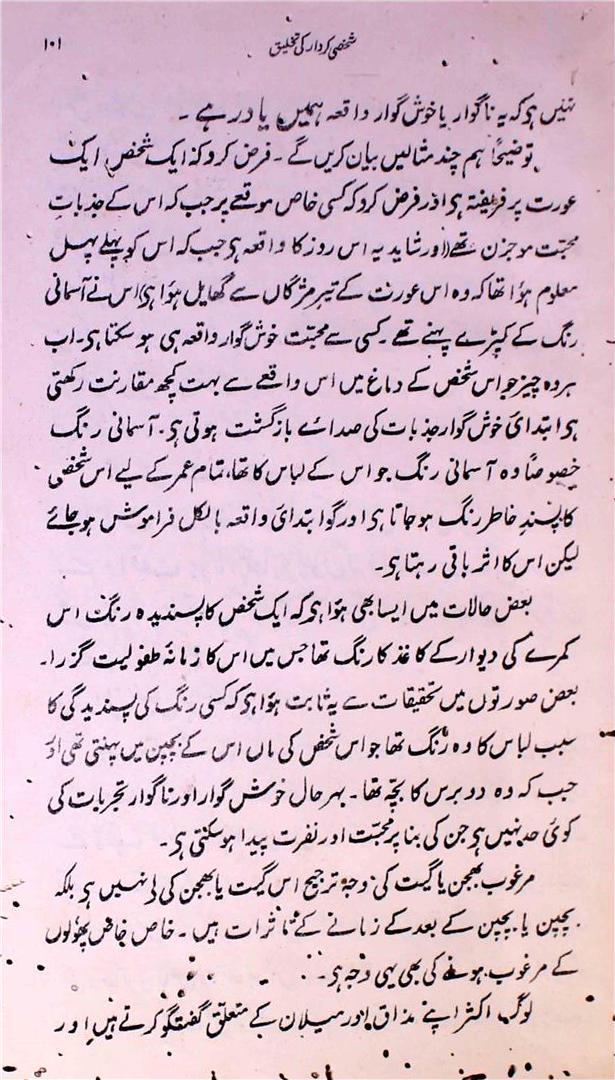 شخصی کردار کی تخلیق
۱۰۱
نہیں ہو کہ یہ ناگوار یا خوش گوار واقعہ ہمیں یاد رہے ۔
توضیحاً ہم چند مثالیں بیان کریں گے ۔ فرض کرو کہ ایک شخص ایک
عورت پر فریفتہ ہو اور فرض کرو کہ کسی خاص موقعے پر جب کہ اس کے جذباتِ
محبّت موجزن تھے (اور شاید یہ اس روز کا واقعہ ہو جب کہ اس کو پہلے پہل
معلوم ہؤا تھا کہ وہ اس عورت کے تیرِ مژگاں سے گھایل ہؤا ہو) اس نے آسمانی
رنگ کے کپڑے پہنے تھے ۔ کسی سے محبّت خوش گوار واقعہ ہی ہو سکتا ہو۔ اب
ہر وہ چیز جو اس شخص کے دماغ میں اس واقعے سے بہت کچھ مقارنت رکھتی
ہو ابتدائ خوش گوار جذبات کی صدائے بازگشت ہوتی ہو۔ آسمانی رنگ
خصوصاً وہ آسمانی رنگ جو اس کے لباس کا تھا، تمام عمر کے لیے اس شخص
کا پسندِ خاطر رنگ ہو جاتا ہو اور گو ابتدائ واقعہ بالکل فراموش ہو جائے
لیکن اس کا اثر باقی رہتا ہو۔
بعض حالات میں ایسا بھی ہؤا ہو کہ ایک شخص کا پسندیدہ رنگ اس
کمرے کی دیوار کے کاغذ کا رنگ تھا جس میں اس کا زمانۂ طفولیت گزرا۔
بعض صورتوں میں تحقیقات سے یہ ثابت ہؤا ہو کہ کسی رنگ کی پسندیدگی کا
سبب لباس کا وہ رنگ تھا جو اس شخص کی ماں اس کے بچپن میں پہنتی تھی اور
جب کہ وہ دو برس کا بچّہ تھا ۔ بہرحال خوش گوار اور ناگوار تجربات کی
کوئ حد نہیں ہو جن کی بنا پر محبّت اور نفرت پیدا ہو سکتی ہو ۔
مرغوب بھجن یا گیت کی وجہِ ترجیح اس گیت یا بھجن کی لَے نہیں ہو بلکہ
بچپن یا بچپن کے بعد کے زمانے کے تاثرات ہیں ۔ خاص خاص پھولوں
کے مرغوب ہونے کی بھی یہی وجہ ہو۔
لوگ اکثر اپنے مذاق اور میلان کے متعلق گفتگو کرتے ہیں اور